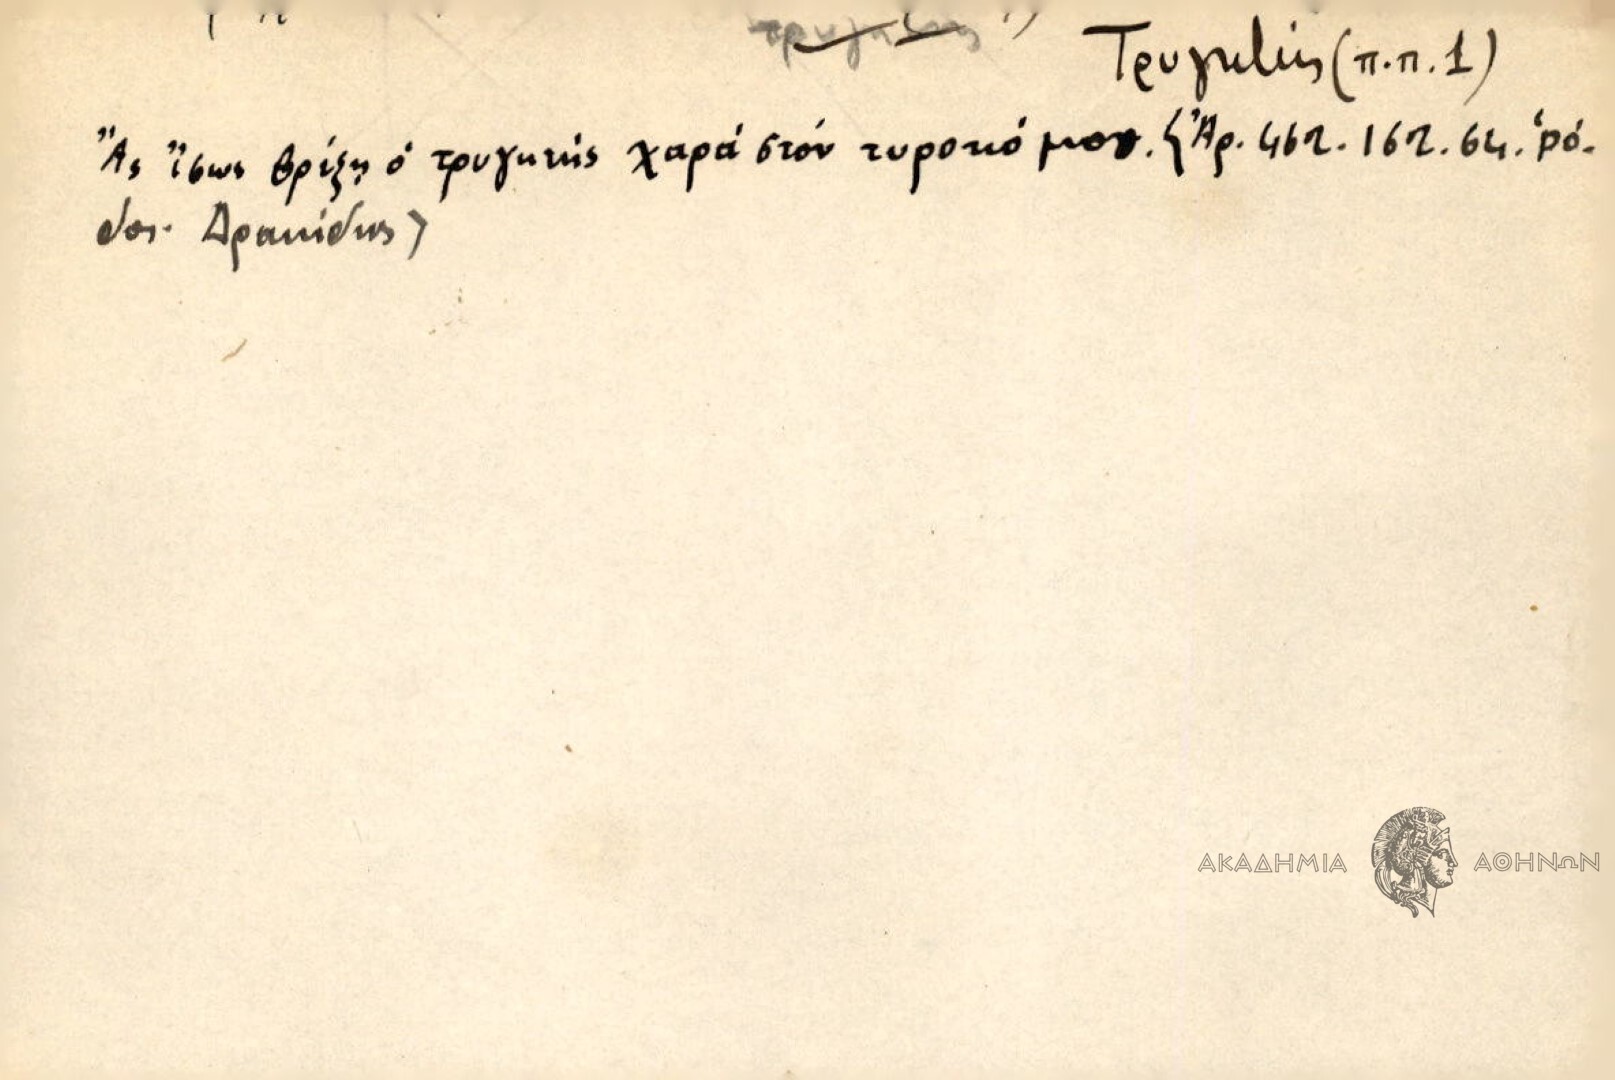 τρυγητής
Τρυγητής (π.π. 1)
Ἂς ἴσως βρέξῃ ὁ τρυγητής χαρά στόν τυροκό μου. {Ἀρ. 462. 162. 64. Ῥό-
δος. Δρακίδης>
ΑΚΑΔΗΜΙΑ ΑΘΗΝΩΝ